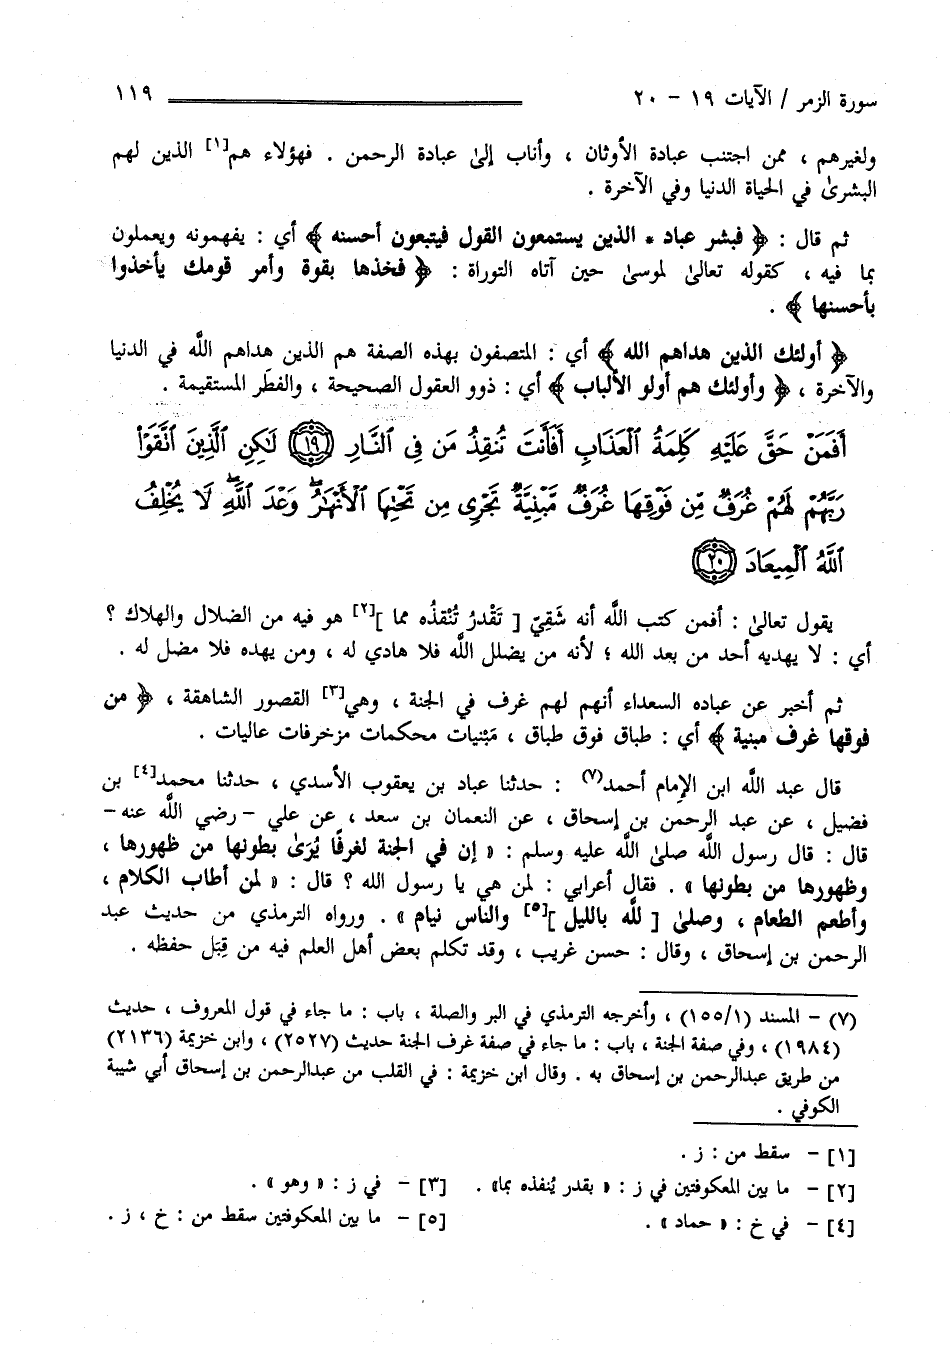 سورة الزمر / الآيات ١٩ - ٢٠ ١١٩
ولغيرهم ، ممن اجتنب عبادة الأوثان ، وأناب إلىٰ عبادة الرحمن . فهؤلاء هم[١] الذين لهم
البشرىٰ في الحياة الدنيا وفي الآخرة .
ثم قال : ﴿ فبشر عباد * الذين يستمعون القول فيتبعون أحسنه ﴾ أي : يفهمونه ويعملون
بما فيه ، كقوله تعالىٰ لموسىٰ حين آتاه التوراة : ﴿ فخذها بقوة وأمر قومك يأخذوا
بأحسنها ﴾ .
﴿ أولئك الذين هداهم الله ﴾ أي : المتصفون بهذه الصفة هم الذين هداهم اللَّه في الدنيا
والآخرة ، ﴿ وأولئك هم أولو الألباب ﴾ أي : ذوو العقول الصحيحة ، والفطَر المستقيمة .
أَفَمَنْ حَقَّ عَلَيْهِ كَلِمَةُ ٱلْعَذَابِ أَفَأَنتَ تُنقِذُ مَن فِى ٱلنَّارِ ١٩ لَٰكِنِ ٱلَّذِينَ ٱتَّقَوْا۟
رَبَّهُمْ لَهُمْ غُرَفٌ مِّن فَوْقِهَا غُرَفٌ مَّبْنِيَّةٌ تَجْرِى مِن تَحْتِهَا ٱلْأَنْهَٰرُ ۖ وَعْدَ ٱللَّهِ ۖ لَا يُخْلِفُ
ٱللَّهُ ٱلْمِيعَادَ ٢٠
يقول تعالىٰ : أفمن كتب اللَّه أنه شَقِيّ [ تَقْدرُ تُنْقذُه مما ][٢] هو فيه من الضلال والهلاك ؟
أي : لا يهديه أحد من بعد الله ؛ لأنه من يضلل اللَّه فلا هادي له ، ومن يهده فلا مضل له .
ثم أخبر عن عباده السعداء أنهم لهم غرف في الجنة ، وهي[٣] القصور الشاهقة ، ﴿ من
فوقها غرف مبنية ﴾ أي : طباق فوق طباق ، مَبْنيات محكمات مزخرفات عاليات .
قال عبد اللَّه ابن الإمام أحمد(٧) : حدثنا عباد بن يعقوب الأسدي ، حدثنا محمد[٤] بن
فضيل ، عن عبد الرحمن بن إسحاق ، عن النعمان بن سعد ، عن علي -رضي اللَّه عنه-
قال : قال رسول اللَّه صلىٰ اللَّه عليه وسلم : « إن في الجنة لغرفًا يُرَىٰ بطونها من ظهورها ،
وظهورها من بطونها » . فقال أعرابي : لمن هي يا رسول الله ؟ قال : « لمن أطاب الكلام ،
وأطعم الطعام ، وصلىٰ [ للَّه بالليل ][٥] والناس نيام » . ورواه الترمذي من حديث عبد
الرحمن بن إسحاق ، وقال : حسن غريب ، وقد تكلم بعض أهل العلم فيه من قِبَل حفظه .
(٧) - المسند (١٥٥/١) ، وأخرجه الترمذي في البر والصلة ، باب : ما جاء في قول المعروف ، حديث
(١٩٨٤) ، وفي صفة الجنة ، باب : ما جاء في صفة غرف الجنة حديث (٢٥٢٧) ، وابن خزيمة (٢١٣٦)
من طريق عبدالرحمن بن إسحاق به . وقال ابن خزيمة : في القلب من عبدالرحمن بن إسحاق أبي شيبة
الكوفي .
[١] - سقط من : ز .
[٢] - ما بين المعكوفتين في ز : « بقدر يُنفذه بما» . [٣] - في ز : « وهو » .
[٤] - في خ : « حماد » . [٥] - ما بين المعكوفتين سقط من : خ ، ز .